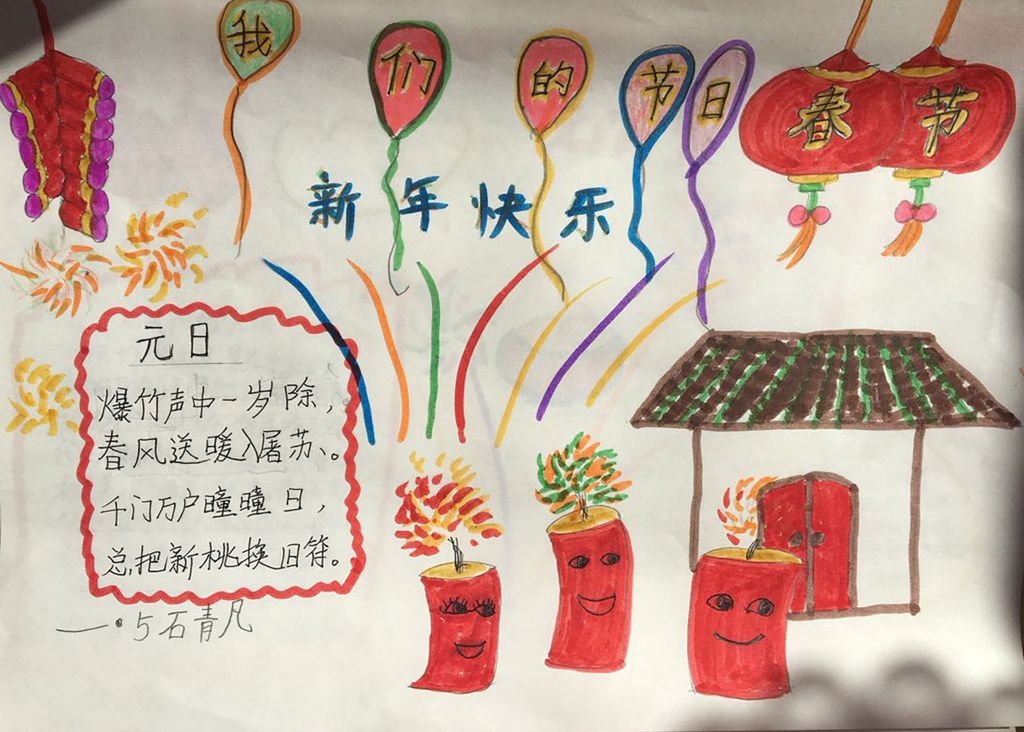 我们的节日
春节
新年快乐
元日
爆竹声中一岁除，
春风送暖入屠苏、。
千门万户曈曈日，
总把新桃换旧符。
——·5石青凡